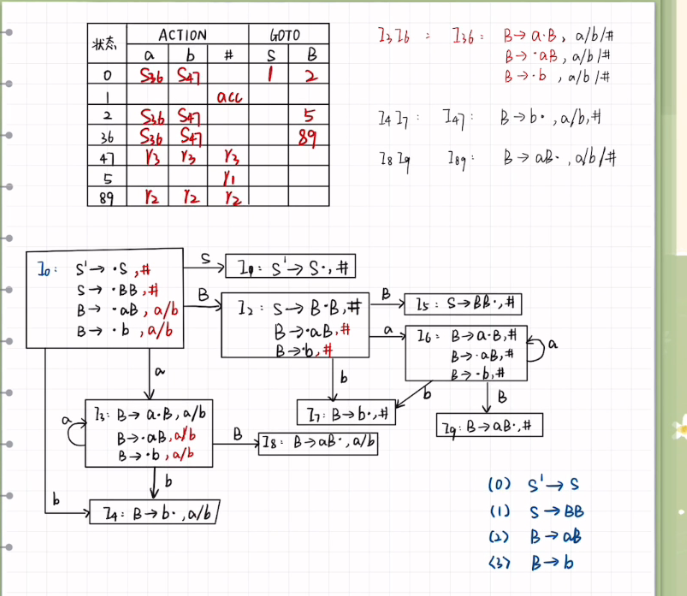 状态 ACTION GOTO
a b # S B
0 S36 S47 1 2
1 acc
2 S36 S47 5
36 S36 S47 89
47 r3 r3 r3
5 r1
89 r2 r2 r2
I3I6 : I36: B→a·B, a/b/#
B→·aB, a/b/#
B→·b, a/b/#
I4I7: I47: B→b·, a/b,#
I8I9 I89: B→aB·, a/b/#
I0: S'→·S,#
S→·BB,#
B→·aB, a/b
B→·b, a/b
S
I1: S'→S·,#
B
I2: S→B·B,#
B→·aB,#
B→·b,#
B
I5: S→BB·,#
a
I6: B→a·B,#
B→·aB,#
B→·b,#
a
b
I7: B→b·,#
b
B
I9: B→aB·,#
a
a
I3: B→a·B, a/b
B→·aB, a/b
B→·b, a/b
B
I8: B→aB·, a/b
b
b
I4: B→b·, a/b
(0) S'→S
(1) S→BB
(2) B→aB
(3) B→b